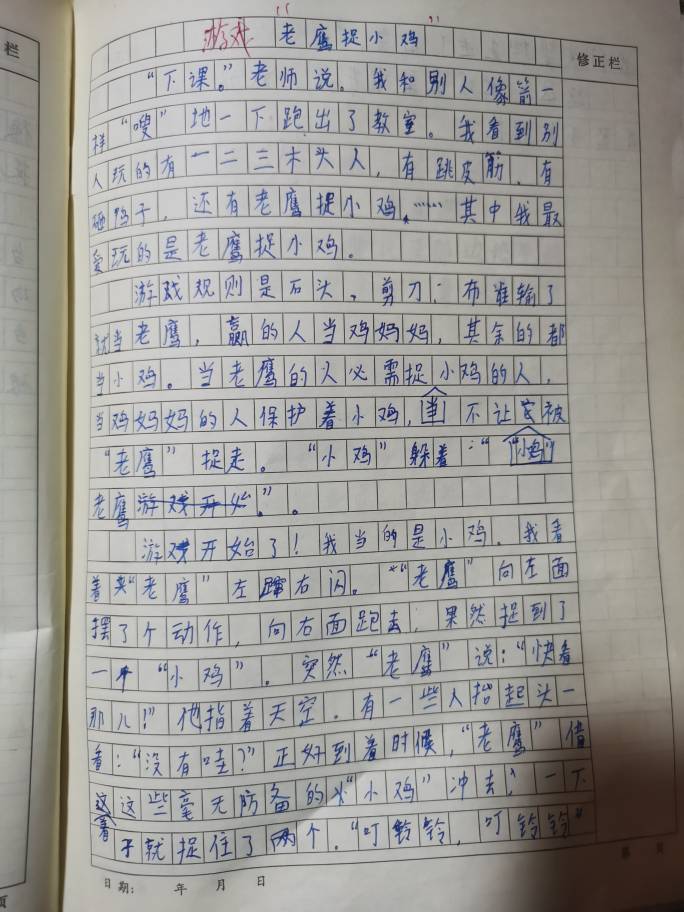 栏
修正栏
游戏“老鹰捉小鸡”
“下课。”老师说。我和别人像箭一
样“嗖”地一下跑出了教室。我看到别
人玩的有一二三木头人，有跳皮筋，有
砸鸭子，还有老鹰捉小鸡。……其中我最
爱玩的是老鹰捉小鸡。
游戏规则是石头、剪刀、布谁输了
就当老鹰，赢的人当鸡妈妈，其余的都
当小鸡。当老鹰的人必需捉小鸡的人，
当鸡妈妈的人保护着小鸡，不让它被
“老鹰”捉走。“小鸡”躲着“小鸡”
老鹰游戏开始。”。
游戏开始了！我当的是小鸡，我看
着“老鹰”左蹿右闪。“老鹰”向左面
摆了个动作，向右面跑去，果然捉到了
一个“小鸡”。突然“老鹰”说：“快看
那儿！”他指着天空，有一些人抬起头一
看：“没有哇？”正好到着时候，“老鹰”借
这些毫无防备的“小鸡”冲去，一下
子就捉住了两个。“叮铃铃，叮铃铃”
日期： 年 月 日
第 页
页